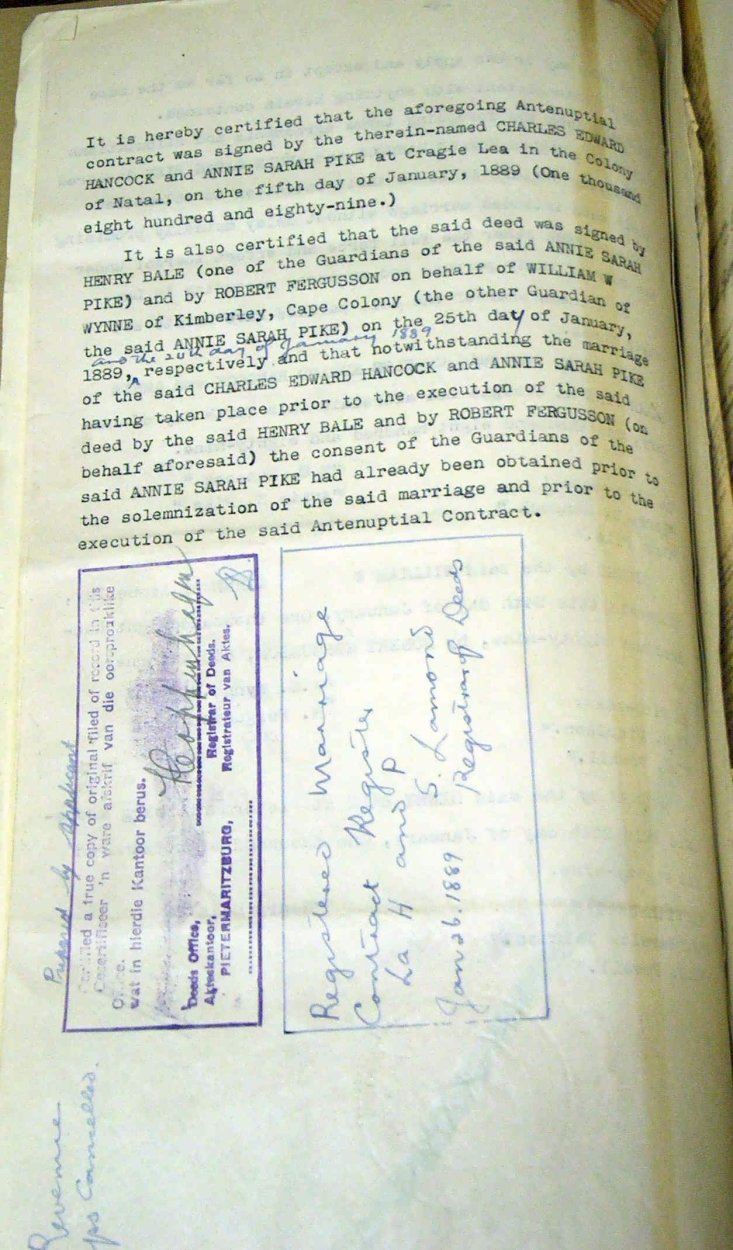 It is hereby certified that the aforegoing Antenuptial
contract was signed by the therein-named CHARLES EDWARD
HANCOCK and ANNIE SARAH PIKE at Cragie Lea in the Colony
of Natal, on the fifth day of January, 1889 (One thousand
eight hundred and eighty-nine.)
It is also certified that the said deed was signed by
HENRY BALE (one of the Guardians of the said ANNIE SARAH
PIKE) and by ROBERT FERGUSSON on behalf of WILLIAM W
WYNNE of Kimberley, Cape Colony (the other Guardian of
the said ANNIE SARAH PIKE) on the 25th day of January,
and the 26th day of January 1889
1889, respectively and that notwithstanding the marriage
of the said CHARLES EDWARD HANCOCK and ANNIE SARAH PIKE
having taken place prior to the execution of the said
deed by the said HENRY BALE and by ROBERT FERGUSSON (on
behalf aforesaid) the consent of the Guardians of the
said ANNIE SARAH PIKE had already been obtained prior to
the solemnization of the said marriage and prior to the
execution of the said Antenuptial Contract.
Prepared by Applicant
Certified a true copy of original filed of record in this
Office.
Gesertifiseer 'n ware afskrif van die oorspronklike
wat in hierdie Kantoor berus.
Deeds Office,
Akteskantoor,
PIETERMARITZBURG,
Registrar of Deeds.
Registrateur van Aktes.
Registered Marriage
Contract Register
La H and P
Jan 26. 1889
S. Lamond
Registrar of Deeds
Revenue
Cancelled.